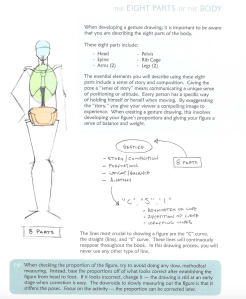 THE EIGHT PARTS OF THE BODY
When developing a gesture drawing, it is important to be aware
that you are describing the eight parts of the body.
These eight parts include:
- Head
- Spine
- Arms (2)
- Pelvis
- Rib Cage
- Legs (2)
The essential elements you will describe using these eight
parts include a sense of story and composition. Giving the
pose a "sense of story" means communicating a unique sense
of positioning or attitude. Every person has a specific way
of holding himself or herself when moving. By exaggerating
the "story," you give your viewer a compelling image to
experience. When creating a gesture drawing, this involves
developing your figure's proportions and giving your figure a
sense of balance and weight.
GESTURE
- STORY / COMPOSITION
- PROPORTIONS
- WEIGHT / BALANCE
8 PARTS
"C", "S", "I"
8 PARTS
The lines most crucial to drawing the figure are the "C" curve,
the straight (line), and "S" curve. These lines will continuously
reappear throughout the book. In the drawing process, you will
never use any other type of line.
When checking the proportion of the figure, try to avoid doing any slow, methodical
measuring. Instead, take the proportions off of what looks correct after establishing the
figure from head to foot. If it looks incorrect, change it — the drawing is still at an early
stage when correction is easy. The downside to slowly measuring out the figure is that it
stiffens the poses. Focus on the activity — the proportion can be corrected later.